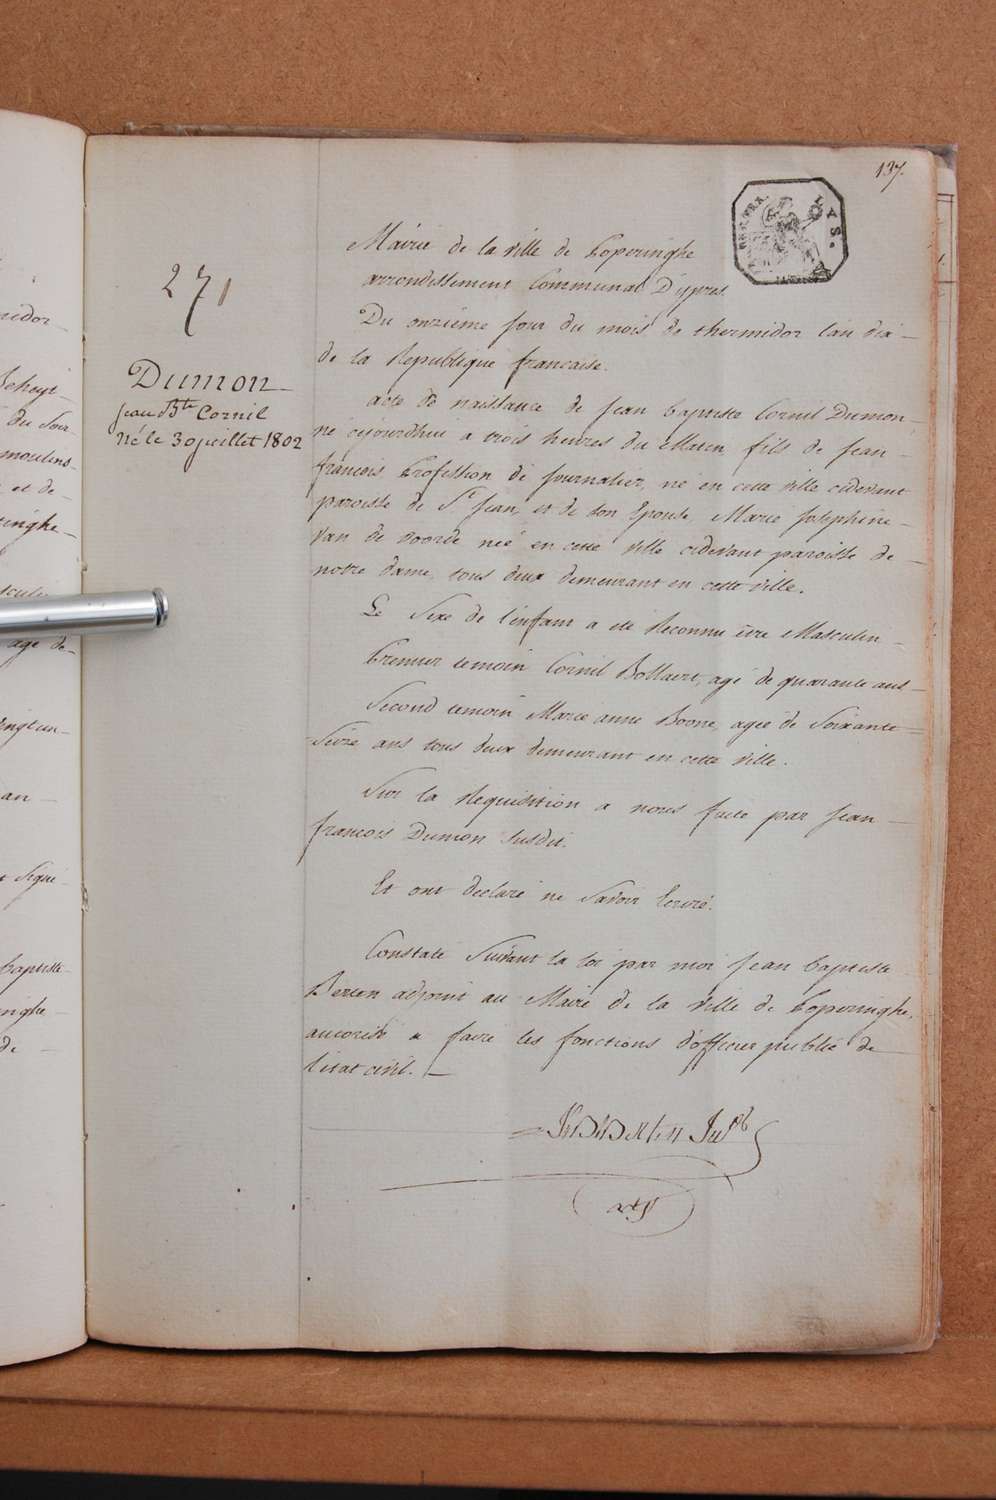 137.
LYS.
Mairie de la ville de Poperinghe
arrondissement Communal D'ypres.
Du onzième jour du mois de thermidor l'an dix
de la Republique francaise.
acte de naissance de Jean baptiste Cornil Dumon,
né cejourdhui a trois heures du Matin fils de Jean
francois Profession de Journalier, né en cette ville cidevant
paroisse de St Jean, et de son Epouse, Marie Josephine
Van de voorde neé en cette ville cidevant paroisse de
notre dame, tous deux demeurant en cette ville.
Le Sexe de l'enfant a eté Reconnu être Masculin
Premier temoin Cornil Bollaert, agé de quarante ans
Second temoin Marie anne Boone, agée de Soixante
Seize ans tous deux demeurant en cette ville.
Sur la Requisition a nous faite par Jean
francois Dumon susdit.
Et ont declaré ne Savoir Ecrire.
Constaté Suivant la loi par moi Jean baptiste
Berten adjoint au Maire de la ville de Poperinghe,
autorisé a faire les fonctions d'officier public de
l'etat civil.
271
Dumon
Jean Bte Cornil
Né le 30 juillet 1802
midor
du Soir
moulins
et de
ringhe
agé de
vingt un
an
baptiste
inghe
de